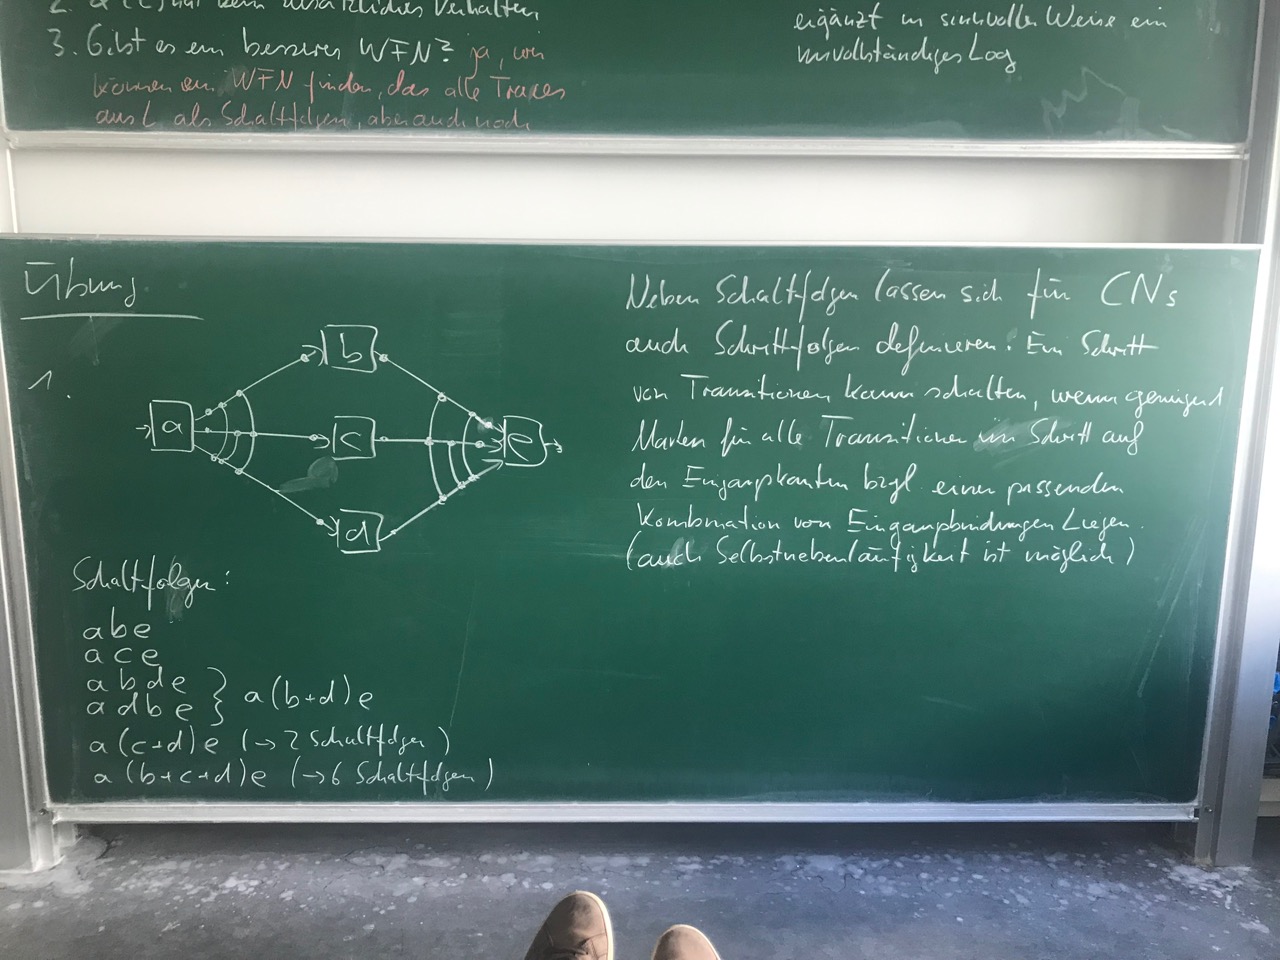 2. α(L) hat kein zusätzliches Verhalten,
3. Gibt es ein besseres WFN? ja, wir
können ein WFN finden, das alle Traces
aus L als Schaltfolgen, aber auch noch
ergänzt in sinnvoller Weise ein
unvollständiges Log
Übung
1.
a
b
c
d
e
Schaltfolgen:
abe
ace
abde
adbe } a(b+d)e
a(c+d)e (→ 2 Schaltfolgen)
a(b+c+d)e (→ 6 Schaltfolgen)
Neben Schaltfolgen lassen sich für CNs
auch Schrittfolgen definieren: Ein Schritt
von Transitionen kann schalten, wenn genügend
Marken für alle Transitionen im Schritt auf
den Eingangskanten bzgl einer passenden
Kombination von Eingangsbindungen liegen.
(auch Selbstnebenläufigkeit ist möglich)